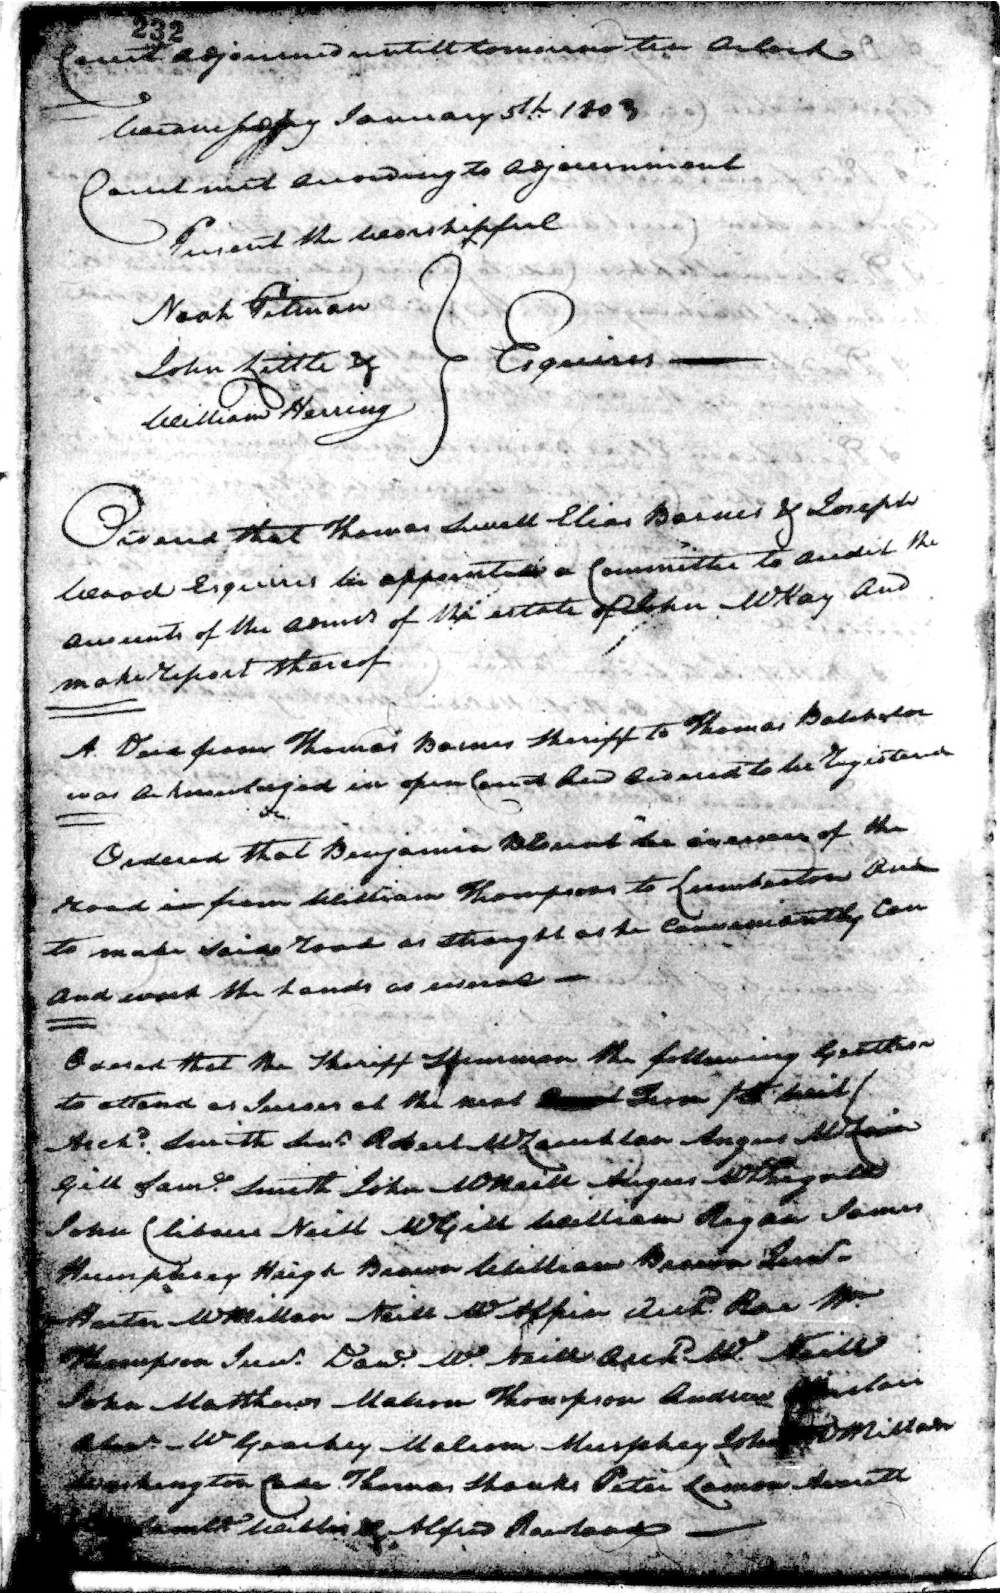 232
Court adjourned untill tomorrow ten Oclock
January 5th 1803
Court met according to adjournment
Present the Worshipful
Noah Pitman
John Little &
William Herring
Esquires
Ordered that Thomas Sewell Elias Barnes & Joseph
Wood Esquires be appointed a Committee to audit the
accounts of the admrs of the estate of John McKay and
make report thereof
A Deed from Thomas Barnes Sheriff to Thomas Batchelor
was acknowledged in open Court and ordered to be Registered
Ordered that Benjamin Blount be overseer of the
road from William Thompsons to Lumberton and
to make said road as straight as he conveniantly can
and work the hands as usual
Ordered that the Sheriff Summon the following
to attend as Jurors at the next Term
Archd. Smith Senr. Robert McLauchlan Angus
Gill Saml. Smith John McNeill Angus
John Neill McGill William Regan James
Humphrey Hugh Brown William Brown Junr.
Hector McMillan Neill Archd. Rae Wm.
Thompson Junr. Danl. Mc. Neill Archd. Mc. Neill
John Matthews Malcom Thompson Andrew
McGeachey Malcom Murphey John McMillan
Washington Cade Thomas Shanks Peter
Willis & Alfred Rowland